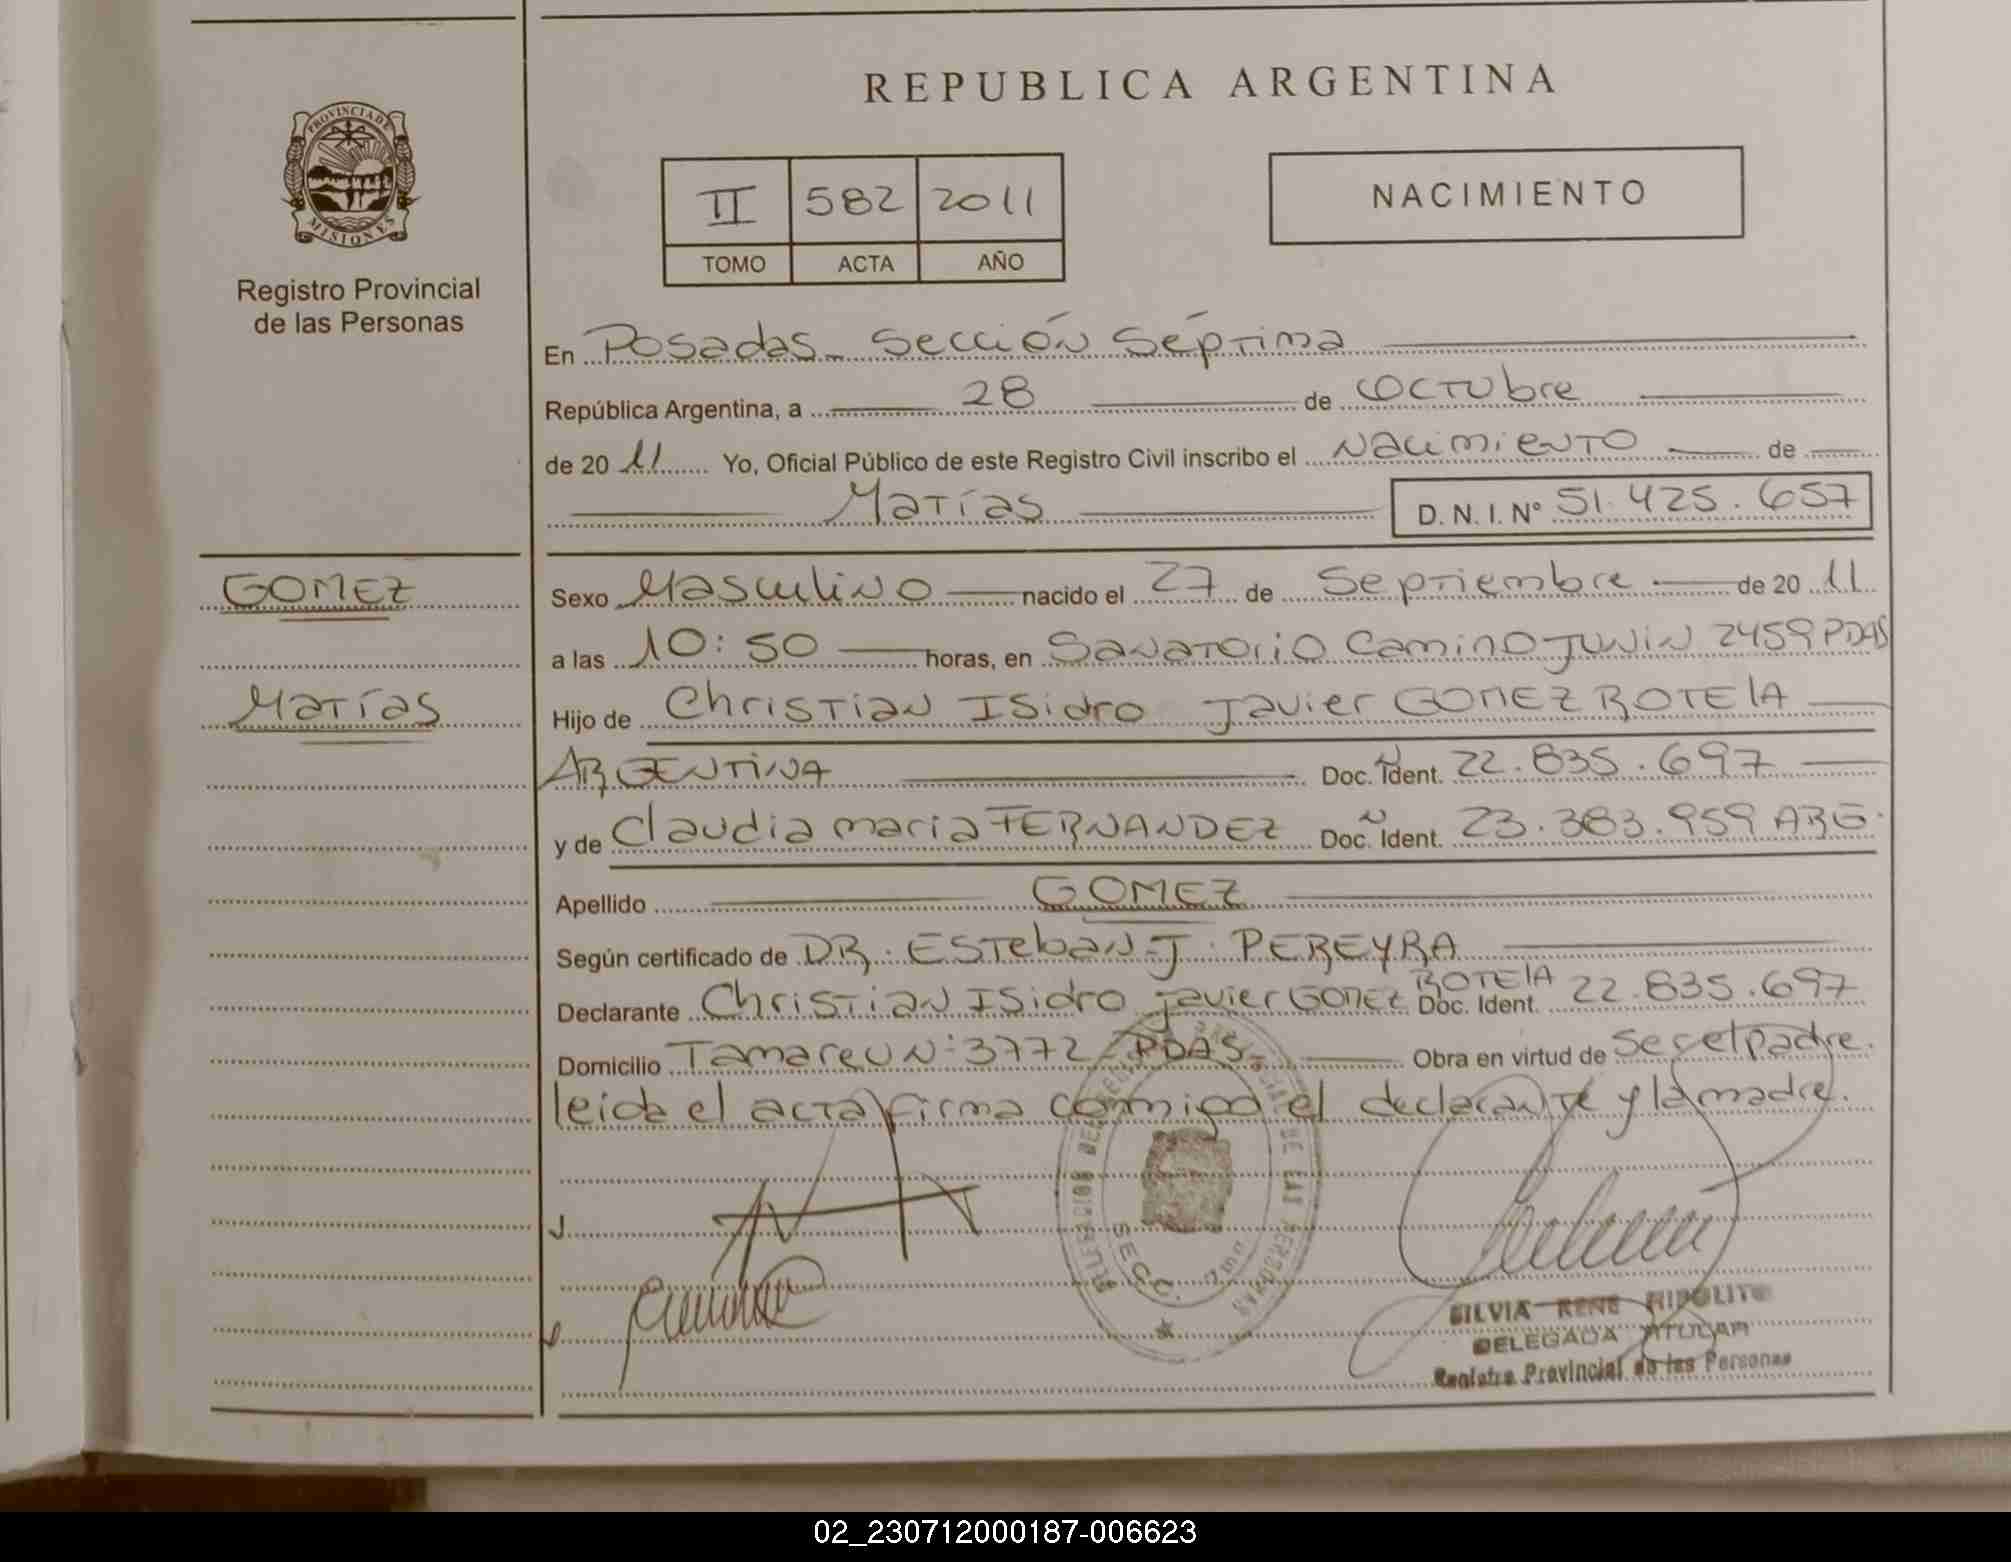 REPUBLICA ARGENTINA
PROVINCIA DE
MISIONES
Registro Provincial
de las Personas
II 582 2011
TOMO ACTA AÑO
NACIMIENTO
En Posadas - Sección Séptima
República Argentina, a 28 de Octubre
de 20 11 Yo, Oficial Público de este Registro Civil inscribo el Nacimiento de
Matías D. N. I. Nº 51.425.657
GOMEZ
Matías
Sexo Masculino nacido el 27 de Septiembre de 20 11
a las 10:50 horas, en Sanatorio Camino Junin 2459 PDAS
Hijo de Christian Isidro Javier GOMEZ ROTELA
ARGENTINA Doc. Ident. 22.835.697
y de Claudia maria FERNANDEZ Doc. Ident. 23.383.959 ARG.
Apellido GOMEZ
Según certificado de DR. ESTEBAN J. PEREYRA
Declarante Christian Isidro Javier GOMEZ ROTELA Doc. Ident. 22.835.697
Domicilio Tamareu Nº 3772 - PDAS - Obra en virtud de ser el padre.
leida el acta firma conmigo el declarante y la madre.
SILVIA RENE HIPOLITO
DELEGADA TITULAR
Registro Provincial de las Personas
02_230712000187-006623